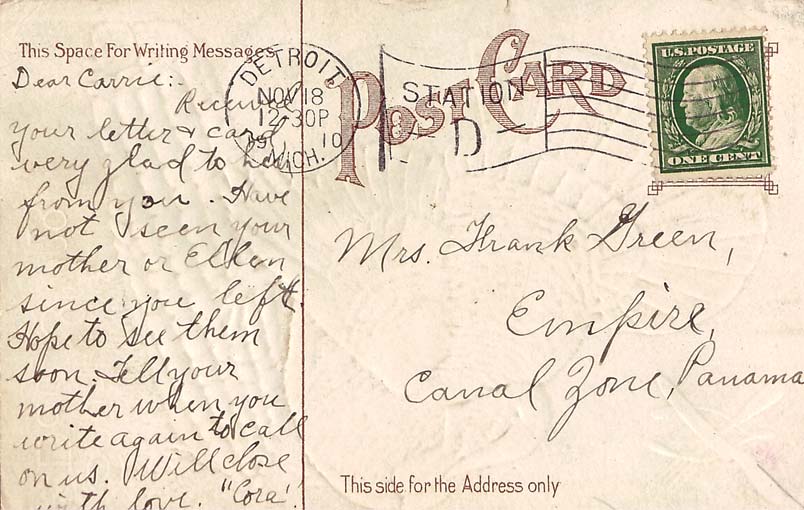 This Space For Writing Messages
Dear Carrie:-
Received
your letter & card
very glad to hear
from you. Have
not seen your
mother or
since you left
Hope to see them
soon. Tell your
mother when you
write again to call
on us. Will close
with love. "Cora".
DETROIT
NOV 18
12-30P
10
MICH.
STATION
D
POST CARD
U.S. POSTAGE
ONE CENT
Mrs. Frank Green,
Empire,
Canal Zone, Panama
This side for the Address only